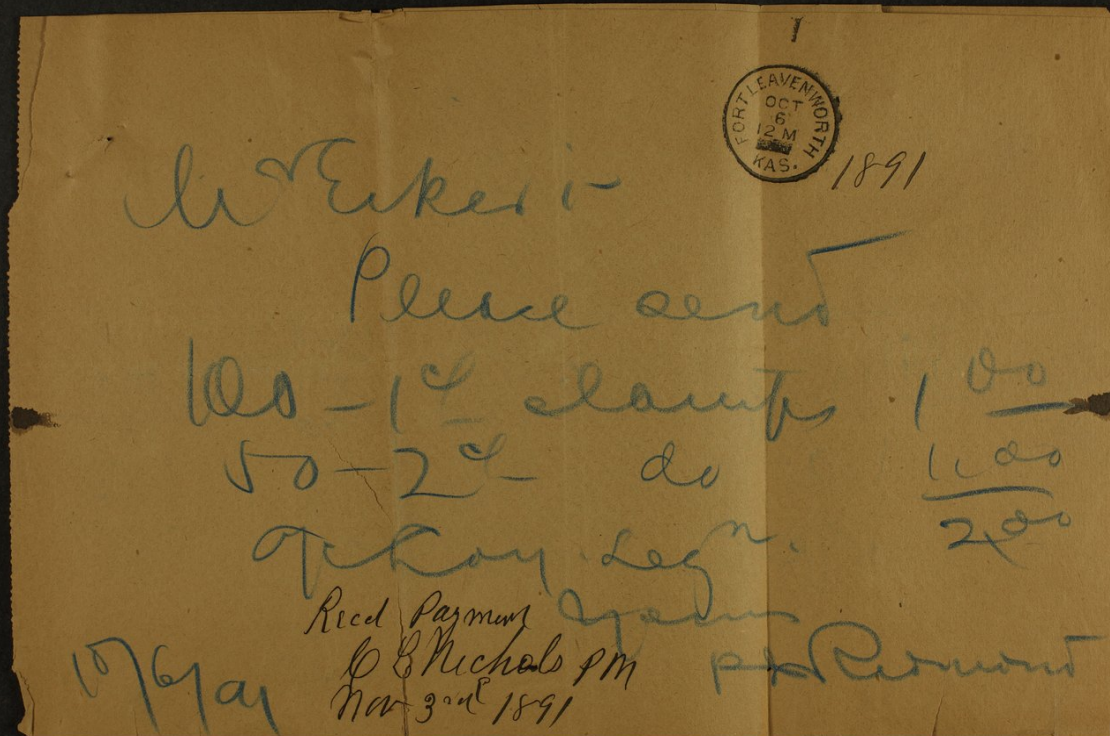 FORT LEAVENWORTH
OCT
6
12 M
KAS.
1891
Mr Eckert
Please send
100 - 1¢ stamps 1 00
50 - 2¢ - do 1.00
2.00
Loy. Legn.
Yours
Recd Payment
C E Nichols PM
Nov 3rd 1891
10/6/91
Redmond